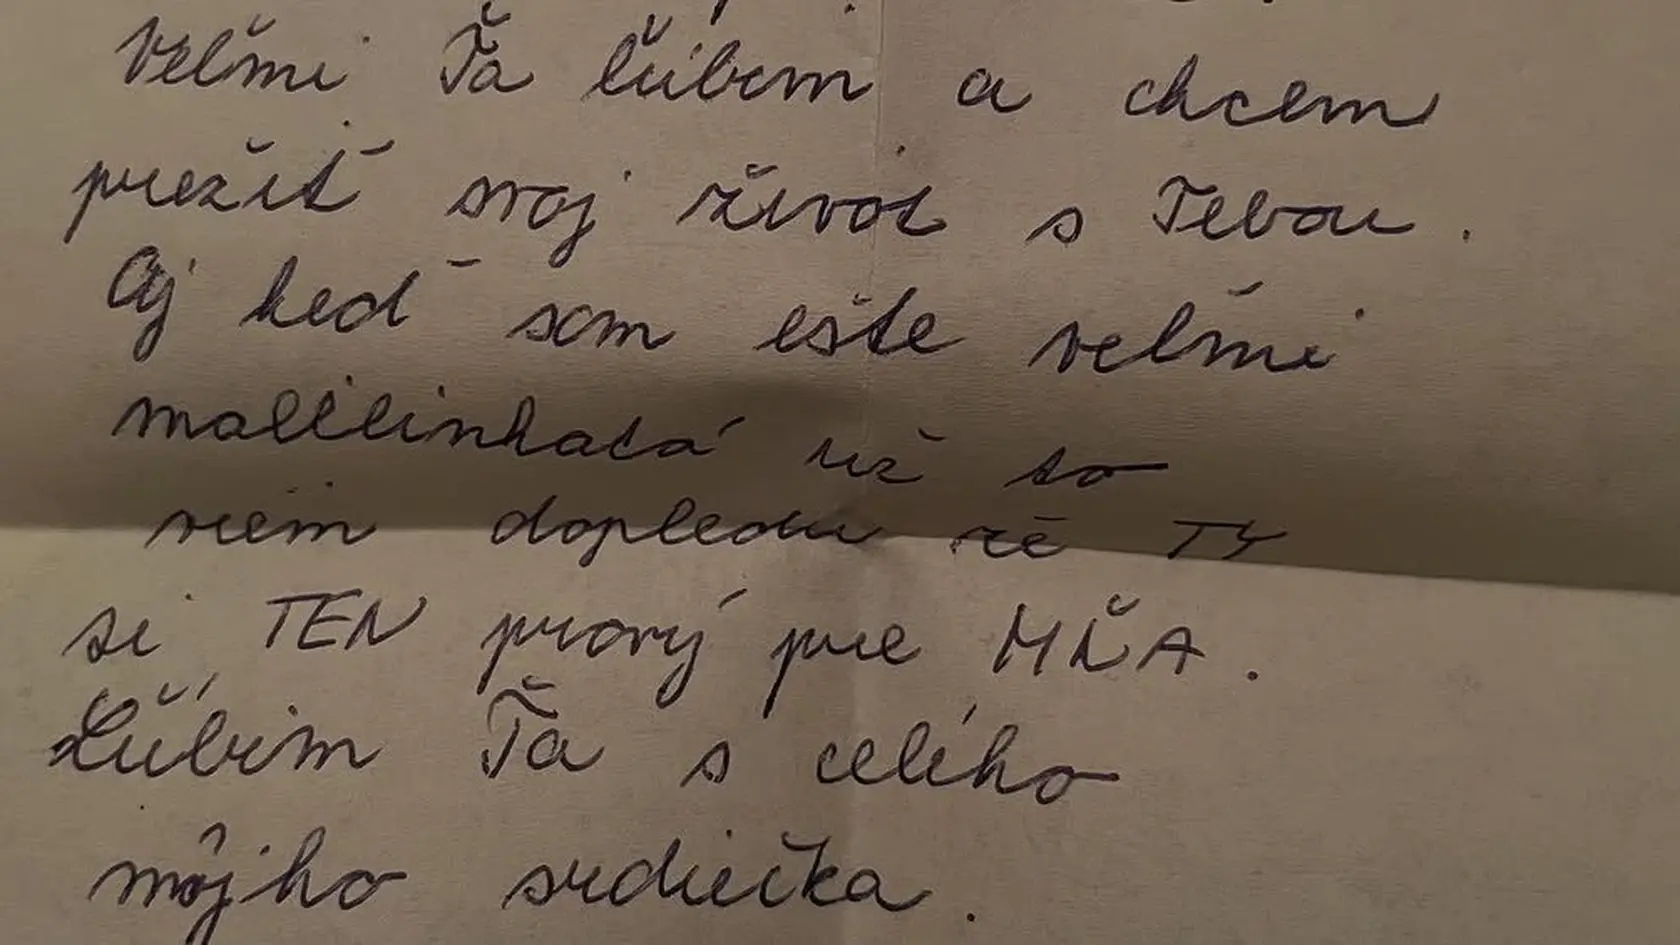 Veľmi Ťa ľúbim a chcem
prežiť svoj život s Tebou.
Aj keď som ešte veľmi
malilinkatá už to
viem dopledu že TY
si TEN pravý pre MŇA.
Ľúbim Ťa s celého
môjho srdiečka.